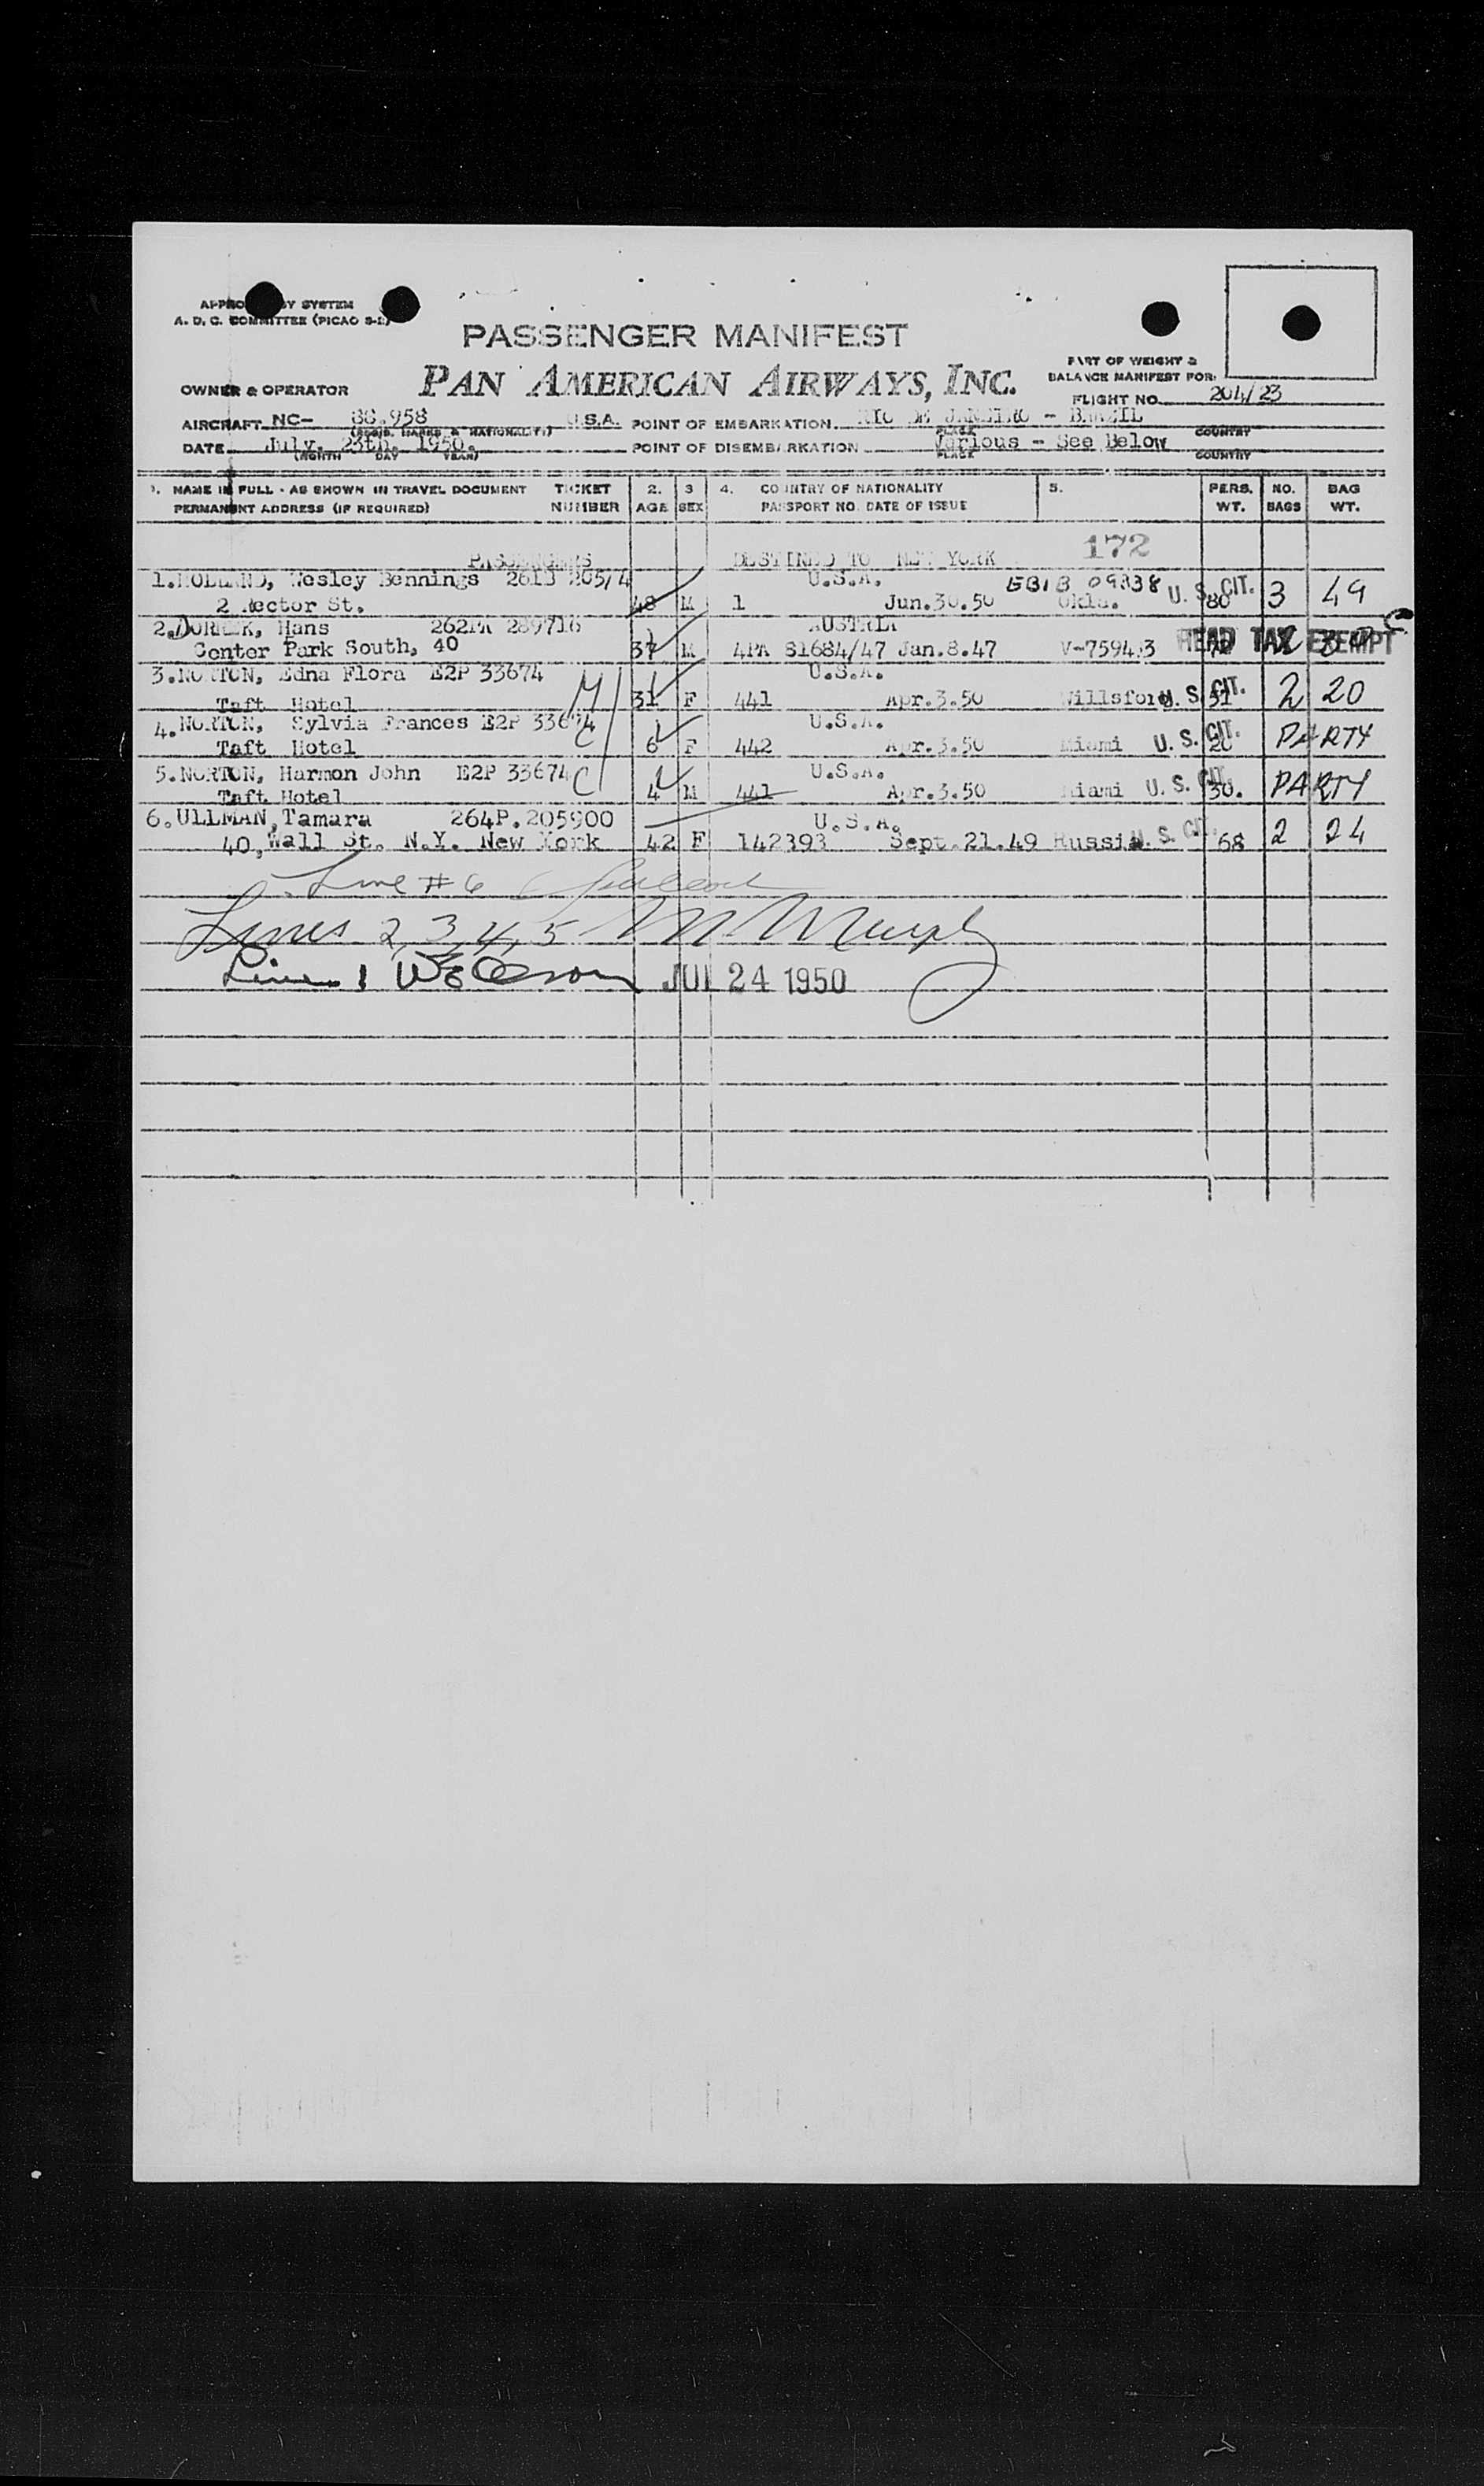 A. D. C. COMMITTEE (PICAO
PASSENGER MANIFEST
PART OF WEIGHT &
BALANCE MANIFEST FOR:
PAN AMERICAN AIRWAYS, INC.
OWNER & OPERATOR
FLIGHT NO. 204/23
AIRCRAFT NC- 88.958 U.S.A. POINT OF EMBARKATION RIO DE JANEIRO - BRAZIL
DATE July. 23th. 1950. POINT OF DISEMBARKATION Various - See Below
(MONTH DAY YEAR) PLACE COUNTRY
1. NAME IN FULL - AS SHOWN IN TRAVEL DOCUMENT TICKET 2. 3 4. COUNTRY OF NATIONALITY 5. PERS. NO. BAG
PERMANENT ADDRESS (IF REQUIRED) NUMBER AGE SEX PASSPORT NO. DATE OF ISSUE WT. BAGS WT.
PASSENGERS DESTINED TO NEW YORK 172
1. HOLLAND, Wesley Bennings U.S.A. U. S. CIT.
2 Rector St. 48 M 1 Jun.30.50 Okla. 80 3 49
2. Hans 262PA 289716 AUSTRIA
Center Park South, 40 37 M 4PA S1684/47 Jan.8.47 HEAD TAX EXEMPT
3. NORTON, Edna Flora E2P 33674 U.S.A.
Taft Hotel 31 F 441 Apr.3.50 U. S. CIT. 51 2 20
4. NORTON, Sylvia Frances E2P 33674 U.S.A.
Taft Hotel 6 F 442 Apr.3.50 Miami U. S. CIT. 20 PARTY
5. NORTON, Harmon John E2P 33674 C U.S.A.
Taft Hotel 4 M 441 Apr.3.50 Miami U. S. CIT. 30. PARTY
6. ULLMAN, Tamara 264P.205900 U.S.A.
40, Wall St. N.Y. New York 42 F 142393 Sept.21.49 Russia U. S. CIT. 68 2 24
Line #6
Lines 2, 3, 4, 5 M Murphy
Line 1 JUL 24 1950